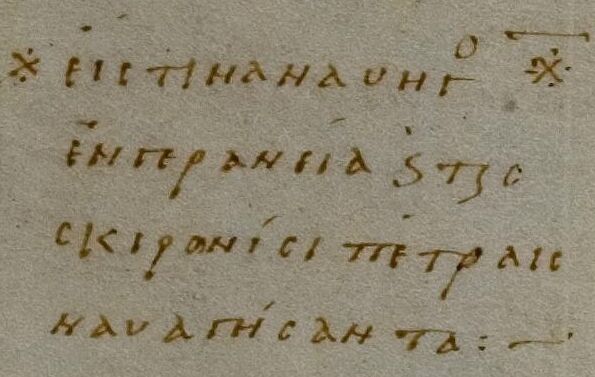 ※ εἰς τινα ναυηγο ※
ἐν γερανείᾳ ϛ
σκιρωνίσι πέτραις
ναυαγήσαντα :—